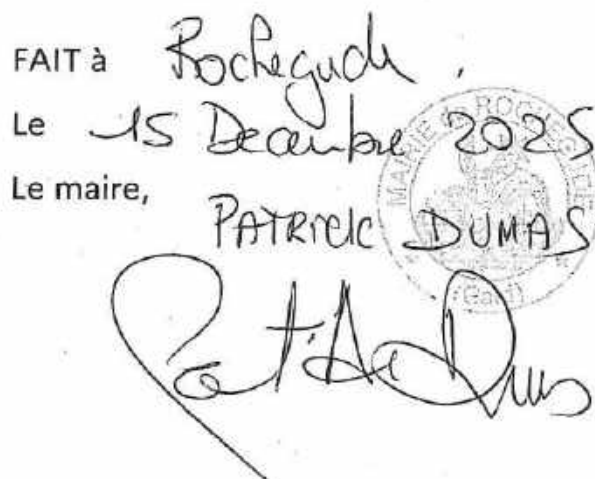 FAIT à Rochegude.
Le 15 Decembre 2025
Le maire,
PATRICK DUMAS
MAIRIE de ROCHEGUDE
(Gard)